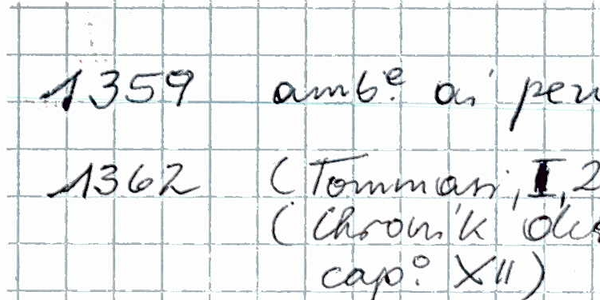 1359 amb.e ai peru
1362 (Tommasi, I, 2
(Chronik des
cap.o XII)